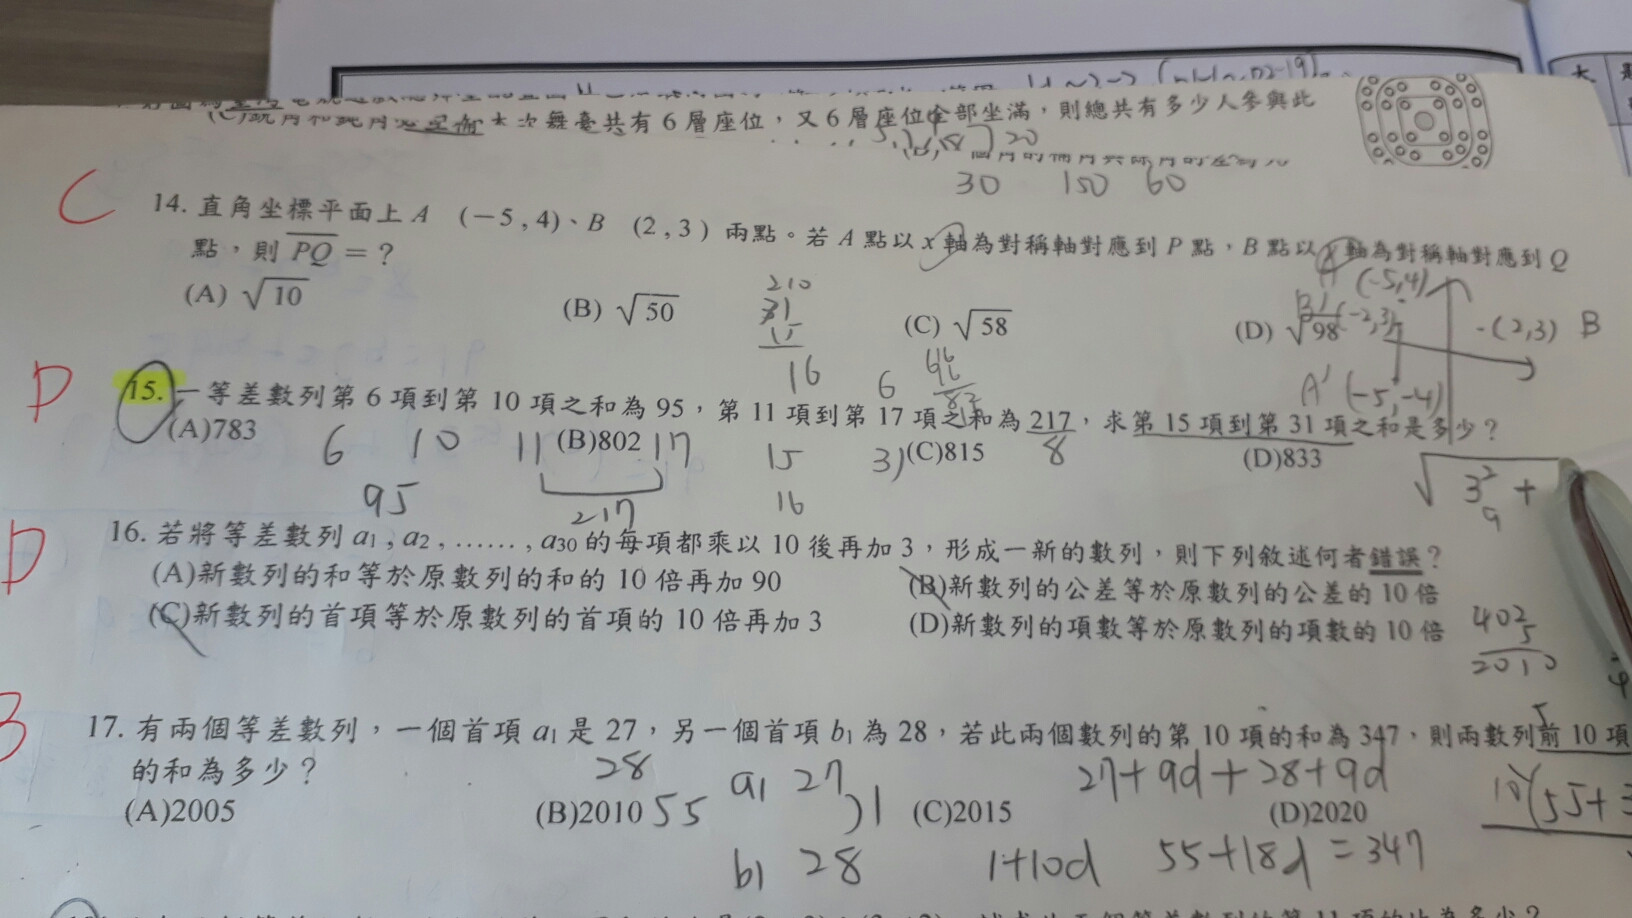 共有6層座位,又6層座位全部坐滿,則總共有多少人參與此
30 150 60
C
14. 直角坐標平面上 A (−5 , 4)、B (2 , 3) 兩點。若 A 點以 x 軸為對稱軸對應到 P 點,B 點以 y 軸為對稱軸對應到 Q
點,則 PQ = ?
(A) √10 (B) √50 (C) √58 (D) √98
210
16
A (-5,4)
B' (-2,3)
-(2,3) B
A' (-5,-4)
D
15. 一等差數列第 6 項到第 10 項之和為 95,第 11 項到第 17 項之和為 217,求第 15 項到第 31 項之和是多少?
(A)783 (B)802 (C)815 (D)833
6 10 11 17 15 31 8
95 217 16
√3² +
9
D
16. 若將等差數列 a1 , a2 , …… , a30 的每項都乘以 10 後再加 3,形成一新的數列,則下列敘述何者錯誤?
(A)新數列的和等於原數列的和的 10 倍再加 90 (B)新數列的公差等於原數列的公差的 10 倍
(C)新數列的首項等於原數列的首項的 10 倍再加 3 (D)新數列的項數等於原數列的項數的 10 倍
402
5
2010
17. 有兩個等差數列,一個首項 a1 是 27,另一個首項 b1 為 28,若此兩個數列的第 10 項的和為 347,則兩數列前 10 項
的和為多少?
28 a1 27 27+9d+28+9d
(A)2005 (B)2010 (C)2015 (D)2020
55
b1 28 1+10d 55+18d=347